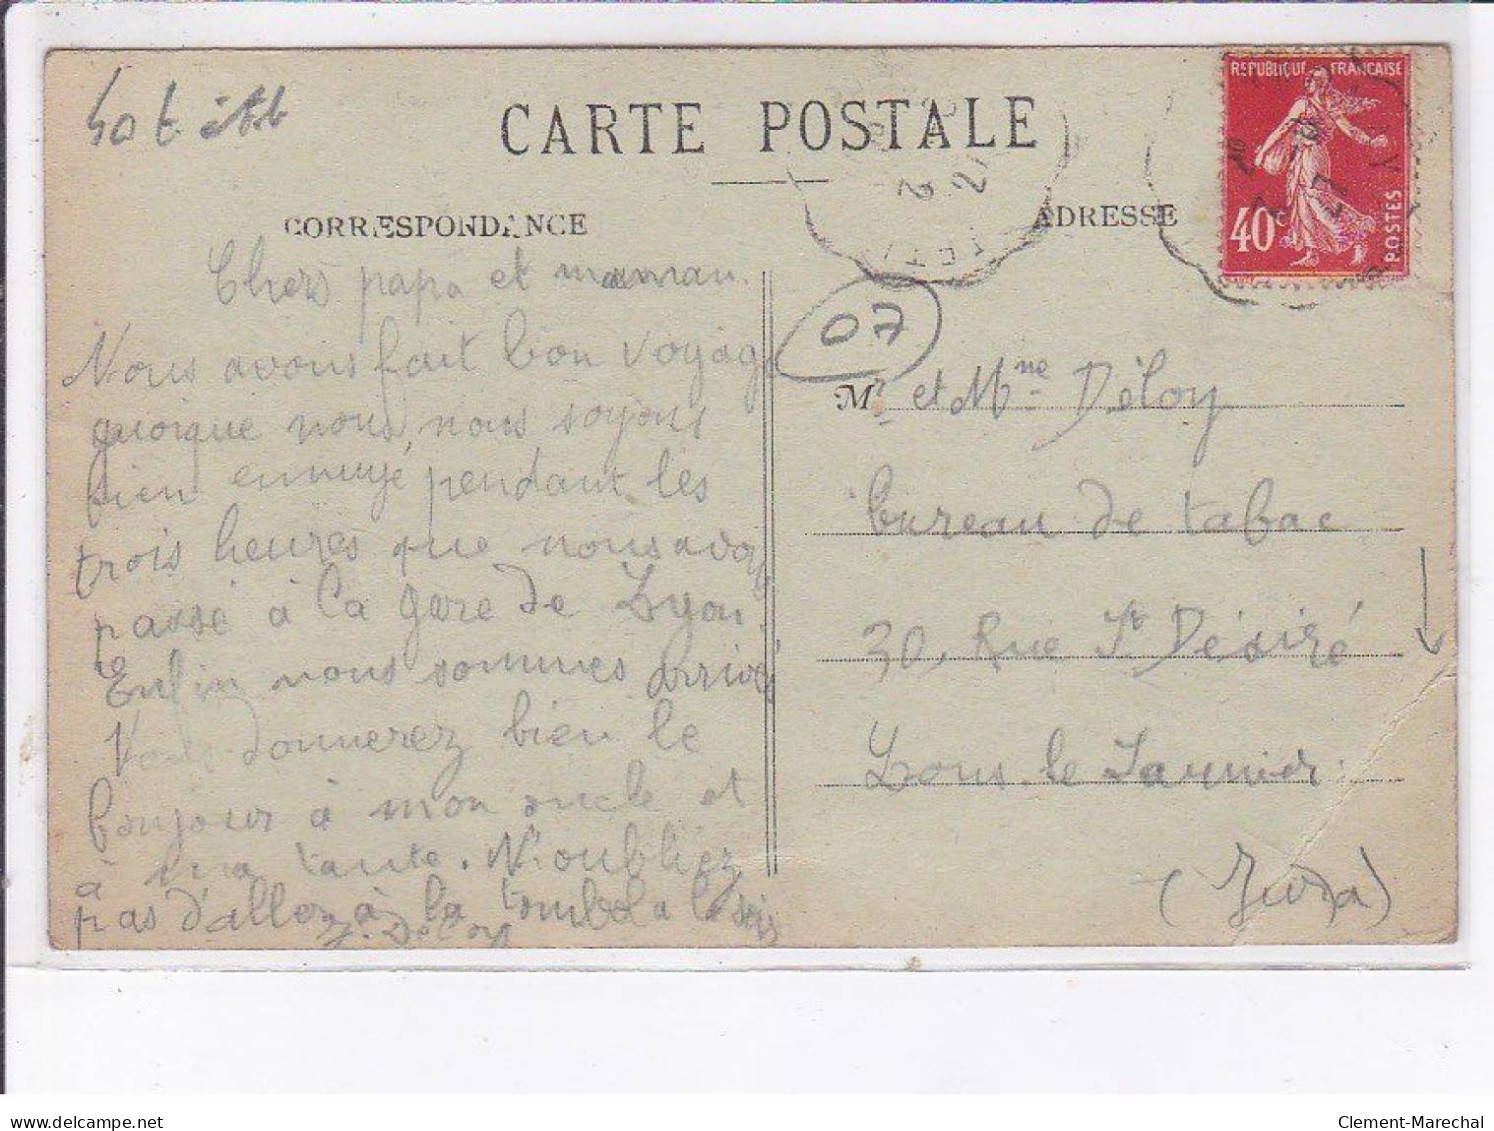 CARTE POSTALE
CORRESPONDANCE
ADRESSE
REPUBLIQUE FRANCAISE
40c
POSTES
07
Chers papa et maman.
Nous avons fait bon voyage
quoique nous, nous soyons
bien ennuyé pendant les
trois heures que nous avons
passé à la gare de Lyon.
Enfin nous sommes arrivés
Vous donnerez bien le
bonjour à mon oncle et
à ma tante. N'oubliez
pas d'allez à la tombola le soir
Deloy
Mr et Mme Déloy
bureau de tabac
30, Rue St Désiré
Lons le Saunier.
(Jura)
delcampe.net
Clement-Marechal